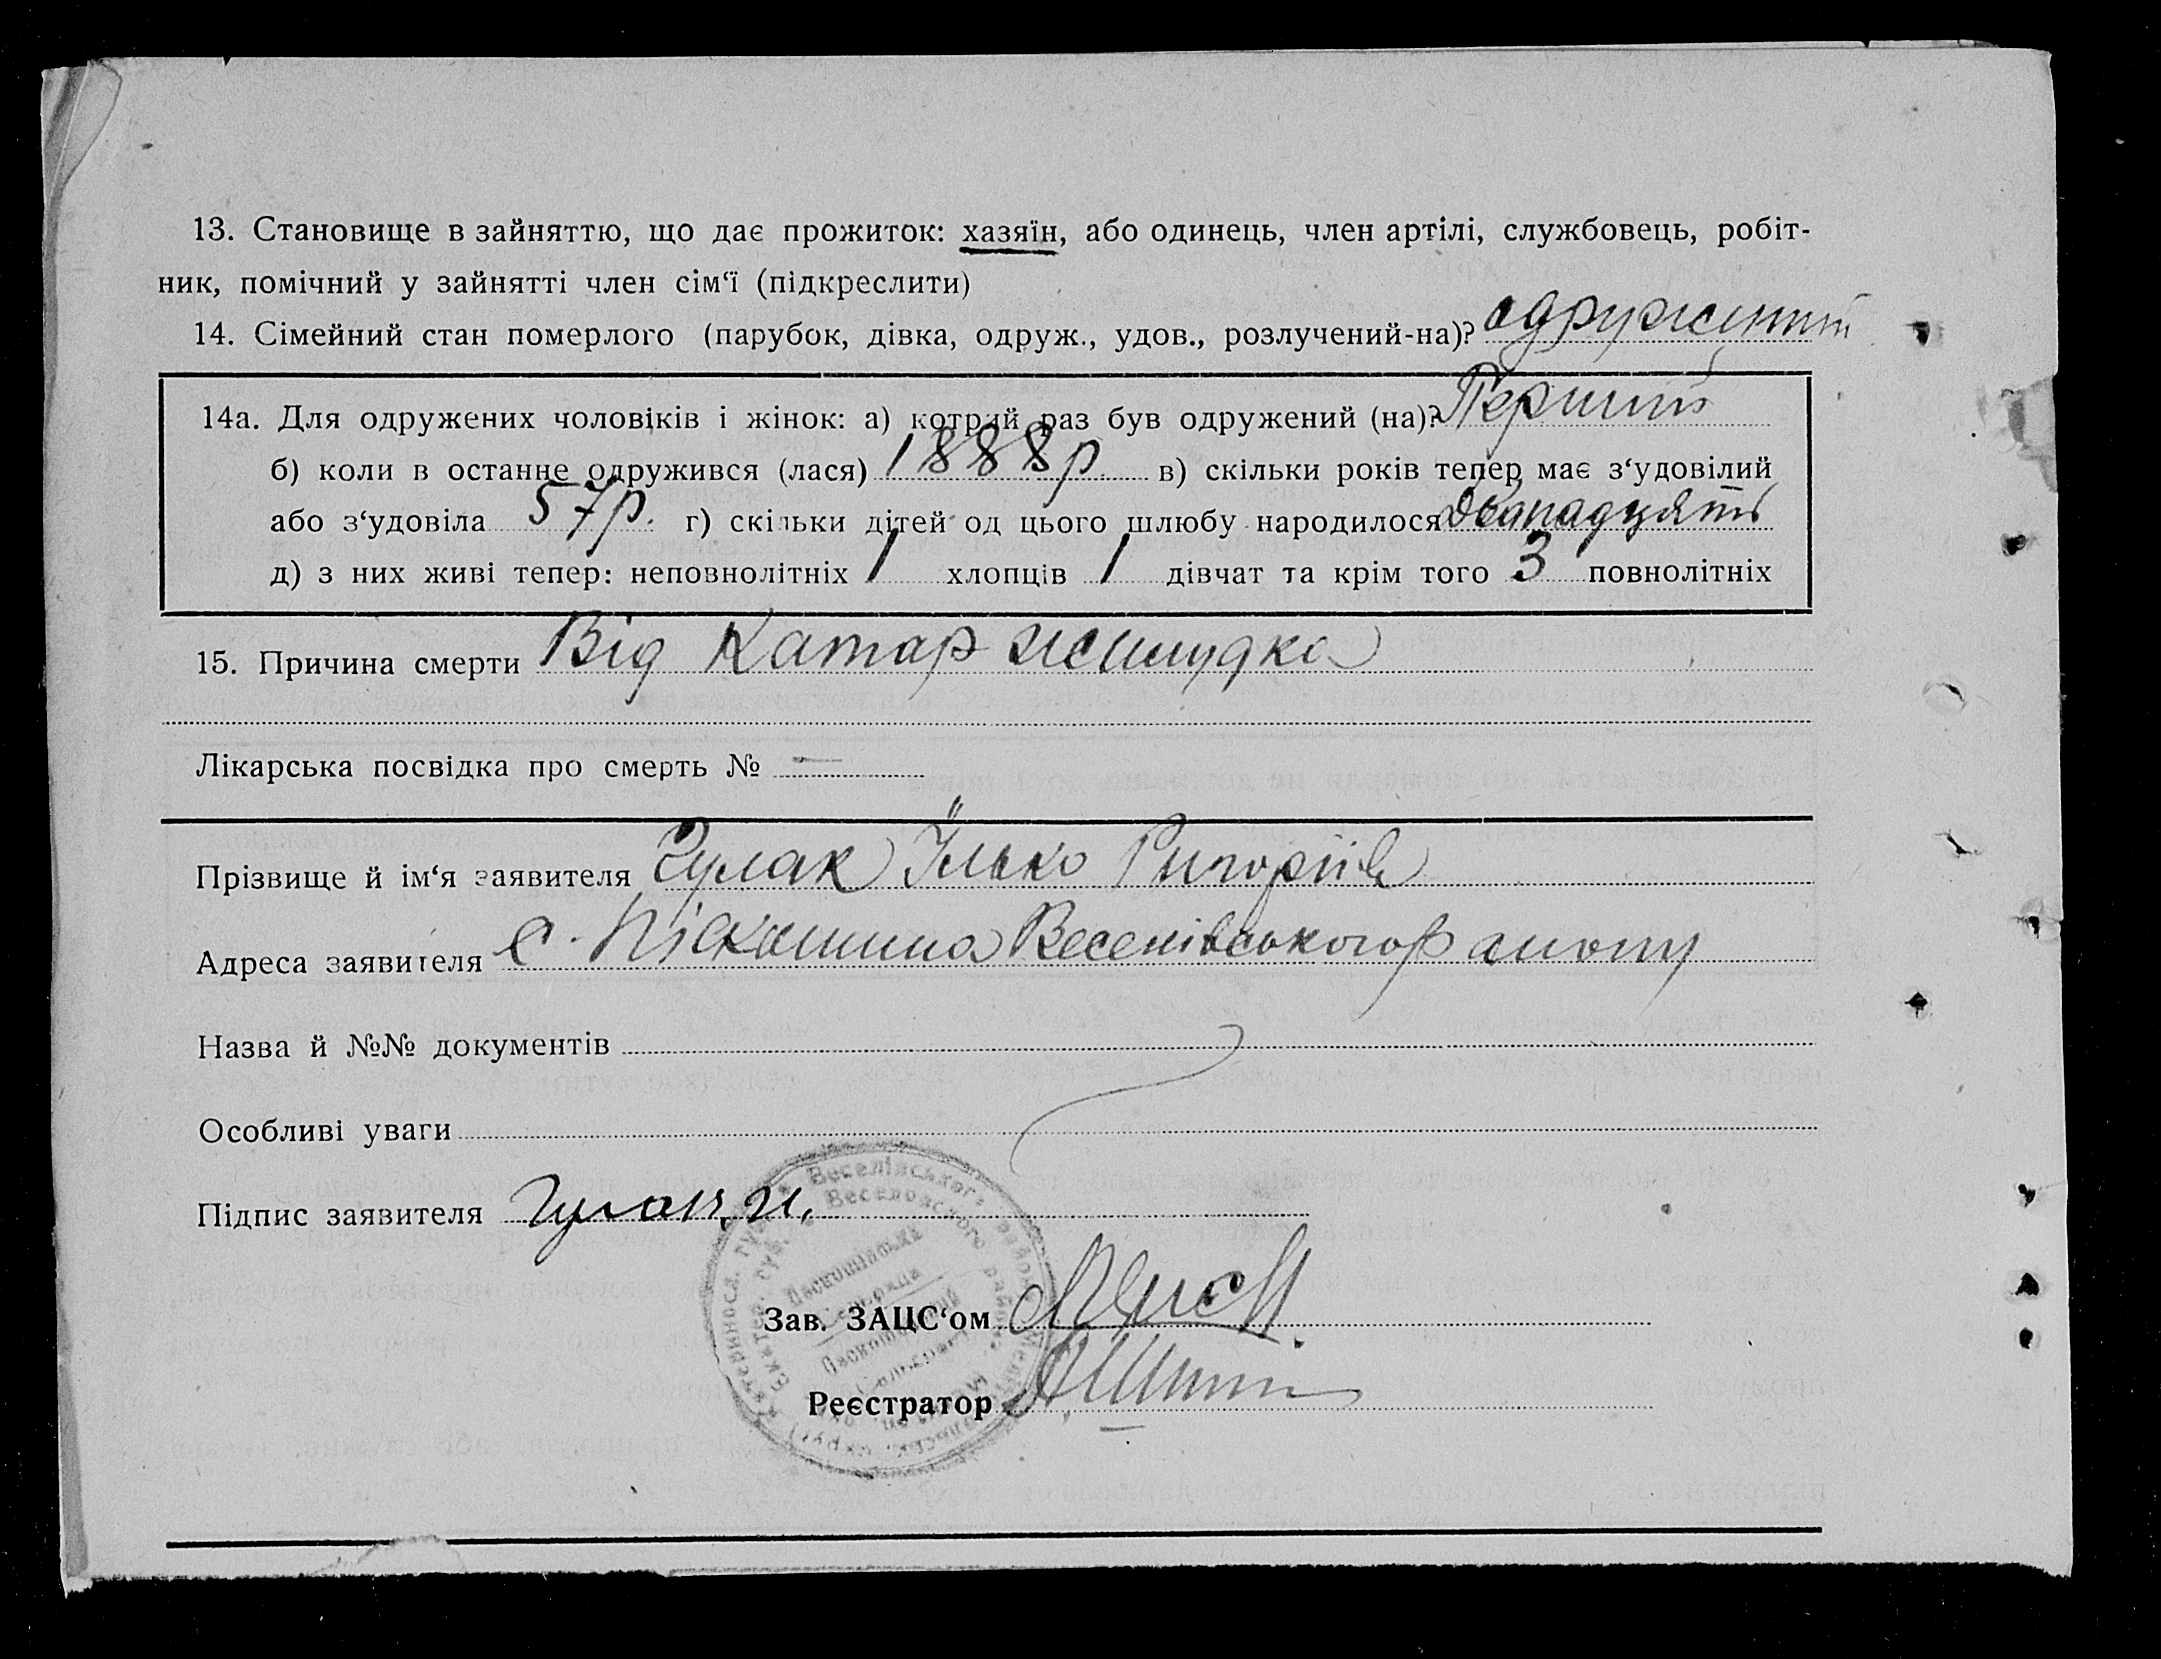 13. Становище в зайняттю, що дає прожиток: хазяїн, або одинець, член артілі, службовець, робіт-
ник, помічний у зайнятті член сім‘ї (підкреслити)
14. Сімейний стан померлого (парубок, дівка, одруж., удов., розлучений-на)? одружений
14а. Для одружених чоловіків і жінок: а) котрий раз був одружений (на)? Перший
б) коли в останнє одружився (лася) 1888 р. в) скільки років тепер має з‘удовілий
або з‘удовіла 57 р. г) скільки дітей од цього шлюбу народилося Дванадцять
д) з них живі тепер: неповнолітніх 1 хлопців 1 дівчат та крім того 3 повнолітніх
15. Причина смерти Від Катар жилудка
Лікарська посвідка про смерть № —
Прізвище й ім‘я заявителя Гулак Їлько Григоріїв
Адреса заявителя с. Піскошина Веселівського району
Назва й №№ документів
Особливі уваги
Підпис заявителя Гулак И.
Веселівського район
Веселовского район
Зав. ЗАЦС‘ом
Реєстратор